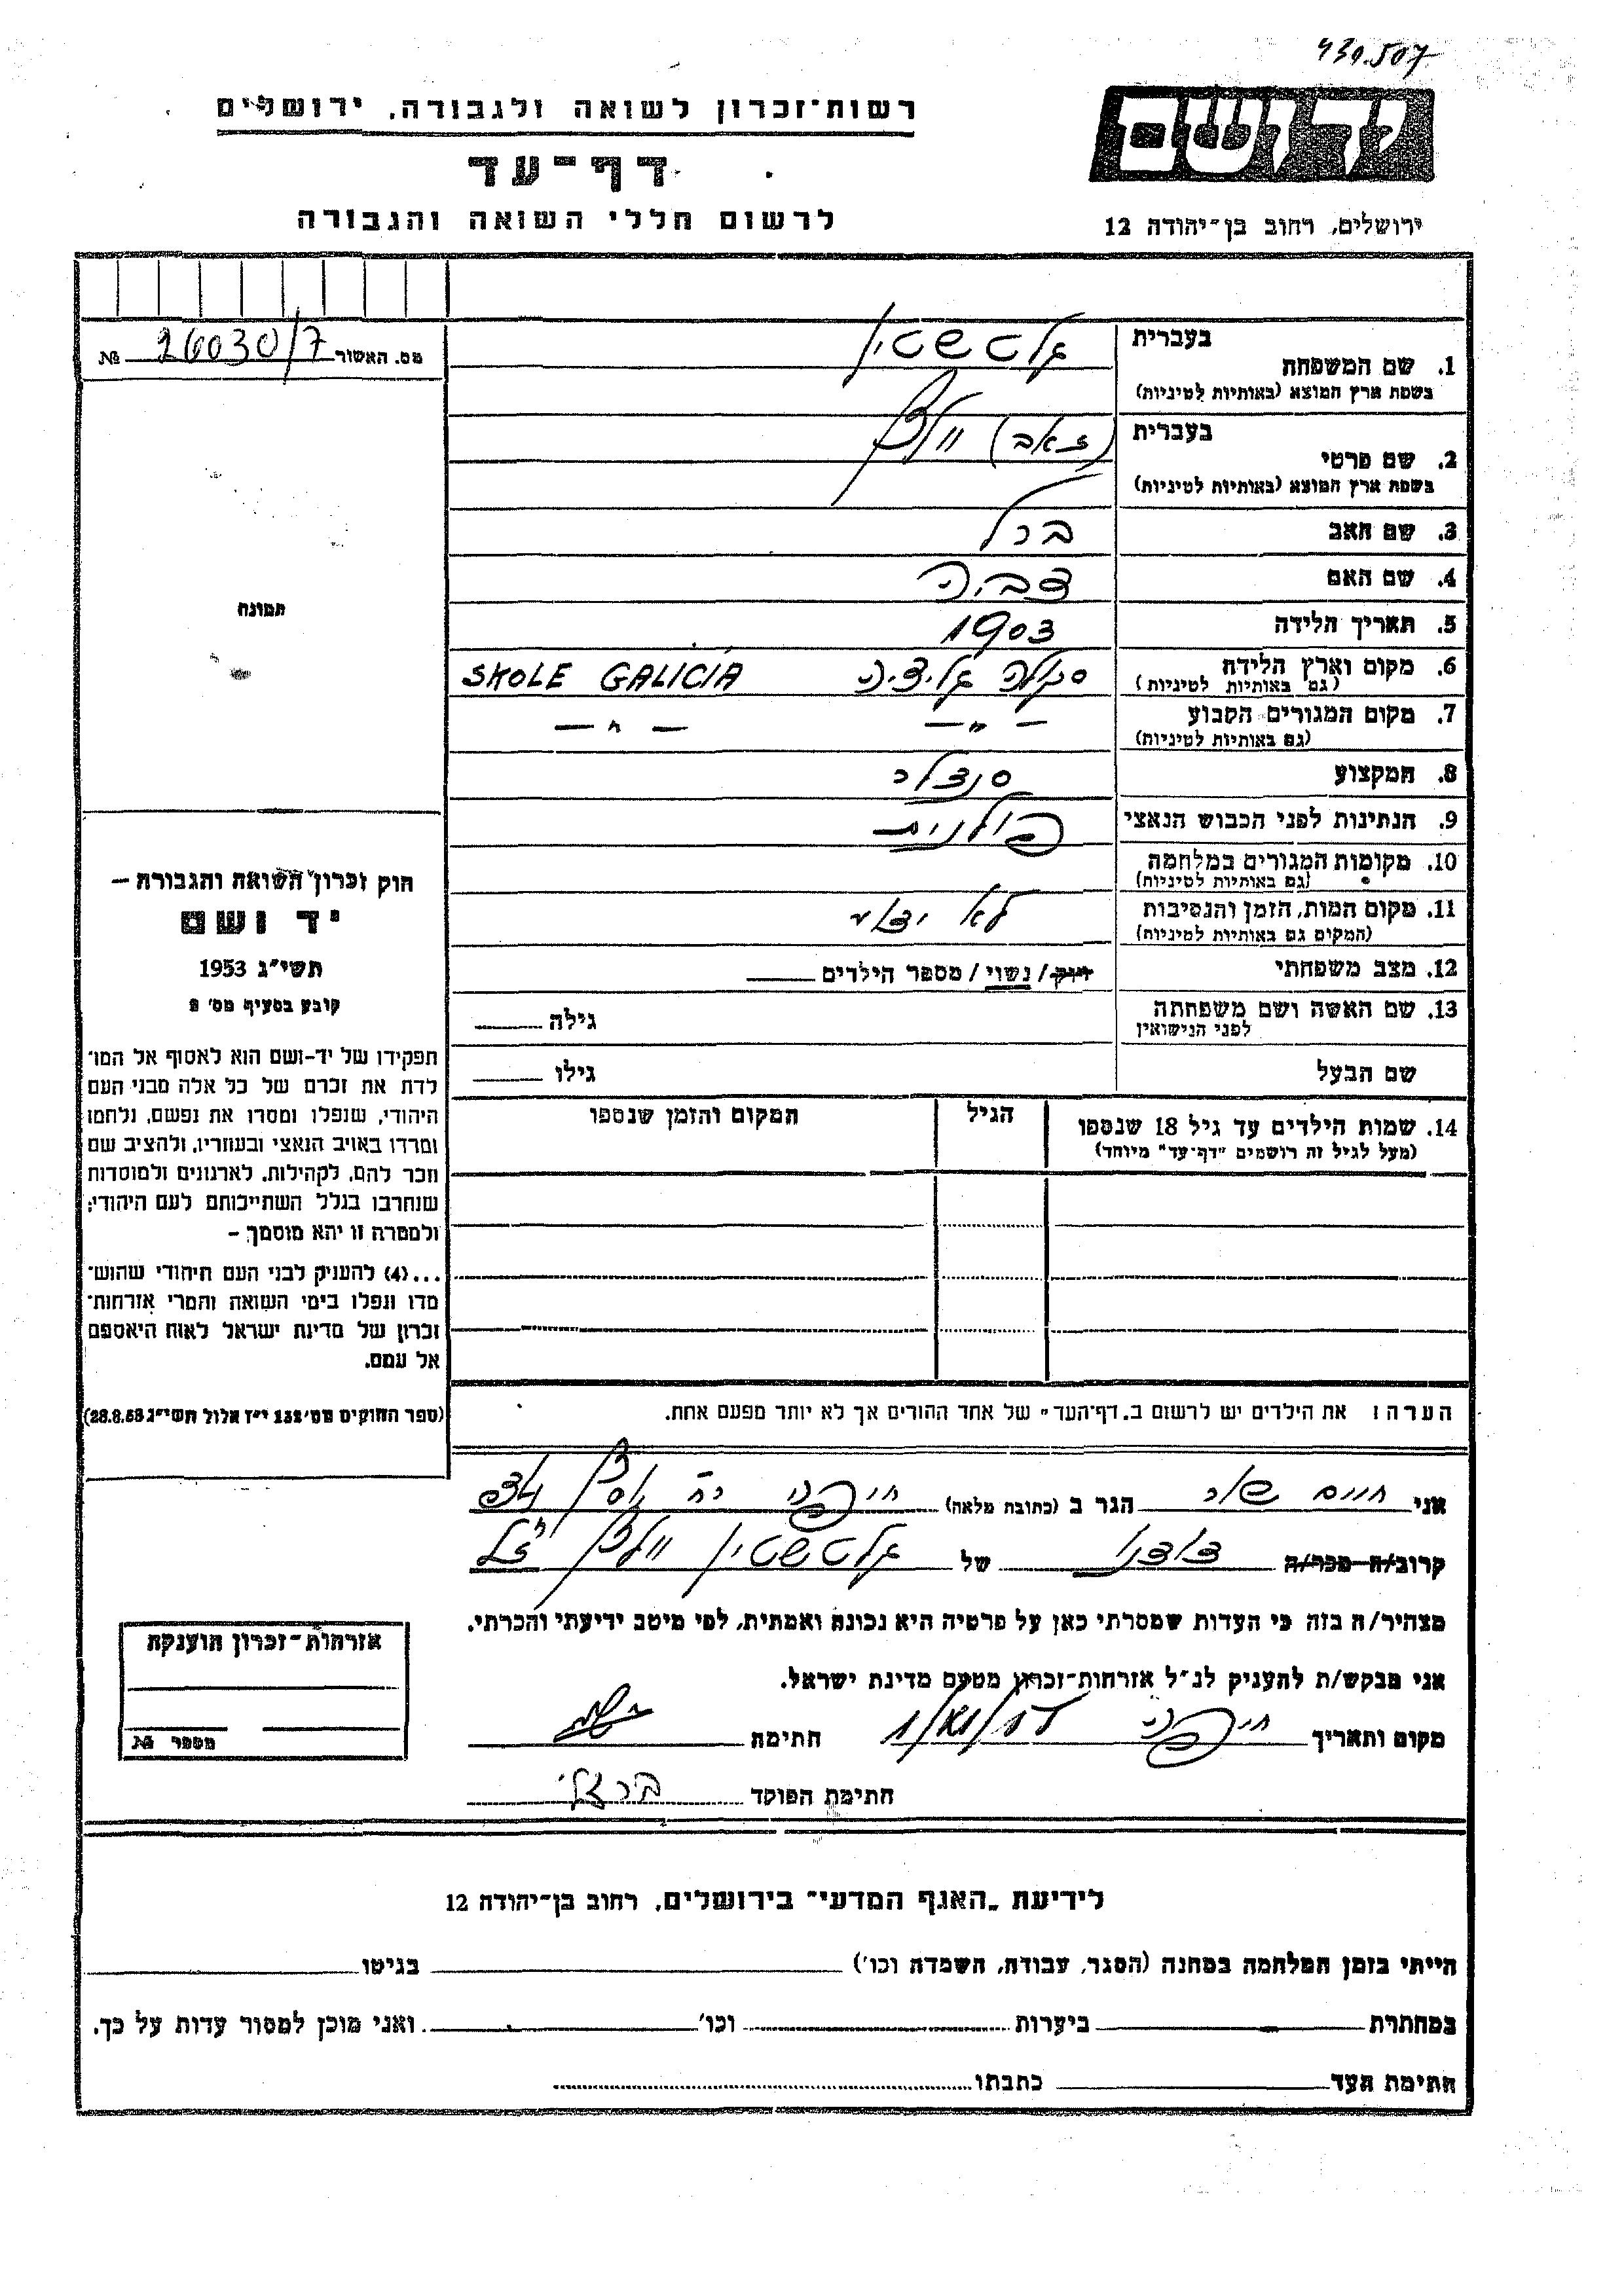 430.507
יד ושם
רשות-זכרון לשואה ולגבורה, ירושלים
דף-עד
לרשום חללי השואה והגבורה
ירושלים, רחוב בן-יהודה 12
מס. האשור 26030/7 №
1. שם המשפחה בעברית גלטשטיין
בשפת ארץ המוצא (באותיות לטיניות)
2. שם פרטי בעברית (זאב) וולף
בשפת ארץ המוצא (באותיות לטיניות)
3. שם האב ברל
4. שם האם צביה
5. תאריך הלידה 1903
6. מקום וארץ הלידה סקולה גליציה SKOLE GALICIA
(גם באותיות לטיניות)
7. מקום המגורים הקבוע — " — — " —
(גם באותיות לטיניות)
8. המקצוע סנדלר
9. הנתינות לפני הכבוש הנאצי פולנית
10. מקומות המגורים במלחמה
(גם באותיות לטיניות)
11. מקום המות, הזמן והנסיבות לא ידוע
(המקום גם באותיות לטיניות)
12. מצב משפחתי רווק / נשוי / מספר הילדים
13. שם האשה ושם משפחתה גילה
לפני הנישואין
שם הבעל גילו
14. שמות הילדים עד גיל 18 שנספו הגיל המקום והזמן שנספו
(מעל לגיל זה רושמים "דף-עד" מיוחד)
תמונה
חוק זכרון השואה והגבורה –
יד ושם
תשי"ג 1953
קובע בסעיף מס' 2
תפקידו של יד-ושם הוא לאסוף אל המו־
לדת את זכרם של כל אלה מבני העם
היהודי, שנפלו ומסרו את נפשם, נלחמו
ומרדו באויב הנאצי ובעוזריו, ולהציב שם
וזכר להם, לקהילות, לארגונים ולמוסדות
שנחרבו בגלל השתייכותם לעם היהודי;
ולמטרה זו יהא מוסמך –
...(4) להעניק לבני העם היהודי שהוש־
מדו ונפלו בימי השואה והמרי אזרחות־
זכרון של מדינת ישראל לאות היאספם
אל עמם.
(ספר החוקים מס' 132 י"ז אלול תשי"ג 28.8.53)
הערה: את הילדים יש לרשום ב„דף-העד" של אחד ההורים אך לא יותר מפעם אחת.
אני חיים הגר ב (כתובת מלאה) חיפה רח'
קרוב/ה מכר/ה של גלטשטיין וולף ז"ל
מצהיר/ה בזה כי העדות שמסרתי כאן על פרטיה היא נכונה ואמתית, לפי מיטב ידיעתי והכרתי.
אני מבקש/ת להעניק לנ"ל אזרחות-זכרון מטעם מדינת ישראל.
מקום ותאריך חיפה חתימת
חתימת הפוקד
אזרחות-זכרון הוענקה
מספר №
לידיעת „האגף המדעי" בירושלים, רחוב בן-יהודה 12
הייתי בזמן המלחמה במחנה (הסגר, עבודה, השמדה וכו') בגיטו
במחתרת ביערות וכו' ואני מוכן למסור עדות על כך.
חתימת העד כתבתו